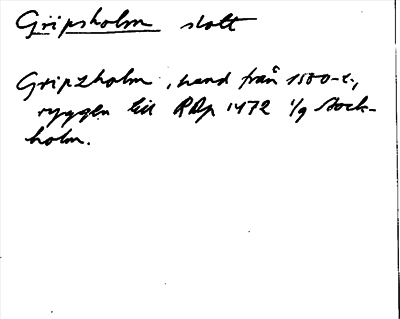 Gripsholm slott
Gripzholm, hand från 1500-t.,
ryggen till RAp 1472 1/9 Stock-
holm.